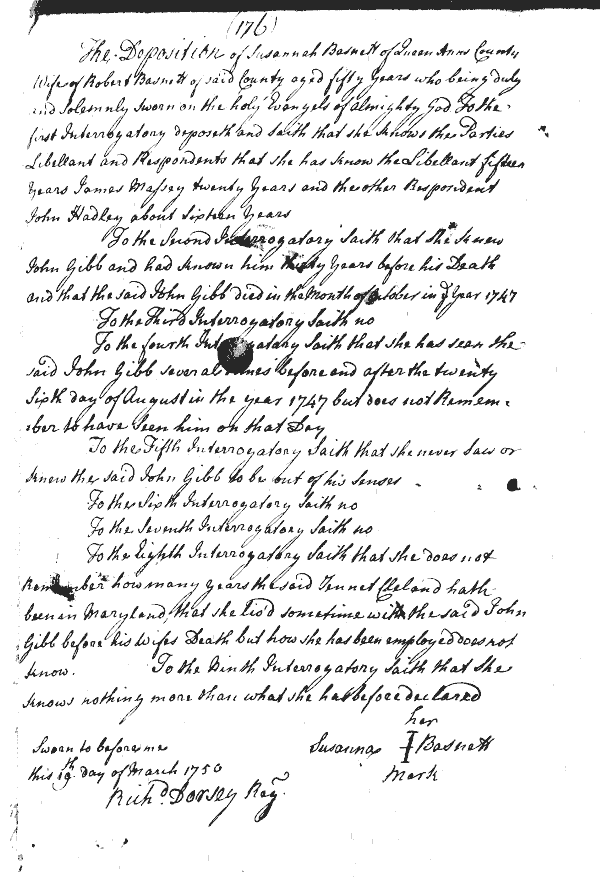 (176)
The Deposition of Susannah Basnett of Queen Anns County
Wife of Robert Basnett of said County aged fifty years who being duly
and Solemnly Sworn on the holy Evangels of almighty God To the
first Interrogatory deposeth and saith that she knows the Parties
Libellant and Respondents that she has know the Libellant fifteen
years James Massey twenty Years and the other Respondent
John Hadley about Sixteen Years
To the Second Interrogatory Saith that She knew
John Gibb and had known him thirty Years before his Death
and that the said John Gibb died in the Month of October in ye Year 1747
To the Third Interrogatory Saith no
To the fourth Interrogatory Saith that she has seen the
said John Gibb several times before and after the twenty
Sixth day of August in the year 1747 but does not Remem-
-ber to have seen him on that Day
To the Fifth Interrogatory Saith that she never saw or
knew the said John Gibb to be out of his senses
To the Sixth Interrogatory Saith no
To the Seventh Interrogatory Saith no
To the Eighth Interrogatory Saith that she does not
Remember how many years the said Jennet Cleland hath
been in Maryland, that she liv'd sometime with the said John
Gibb before his Wifes Death but how she has been employed does not
know. To the Ninth Interrogatory Saith that She
knows nothing more than what she hath before declared
her
Sworn to before me Susanna Ɨ Basnett
this 19th day of March 1750 Mark
Richd Dorsey Regr